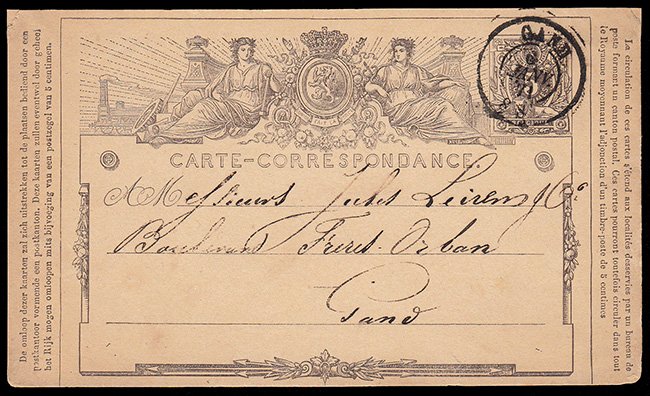 De omloop dezer kaarten zal zich uitstrekken tot de plaatsen bediend door een
postkantoor vormende een postkanton. Deze kaarten zullen eventwel door geheel
het Rijk mogen omloopen mits bijvoeging van een postzegel van 5 centimen.
GAND
CARTE-CORRESPONDANCE
A Messieurs Jules & Cie
Boulevard Frère-Orban
Gand
La circulation de ces cartes s'étend aux localités desservies par un bureau de
poste formant un canton postal. Ces cartes pourront toutefois circuler dans tout
le Royaume moyennant l'adjonction d'un timbre-poste de 5 centimes